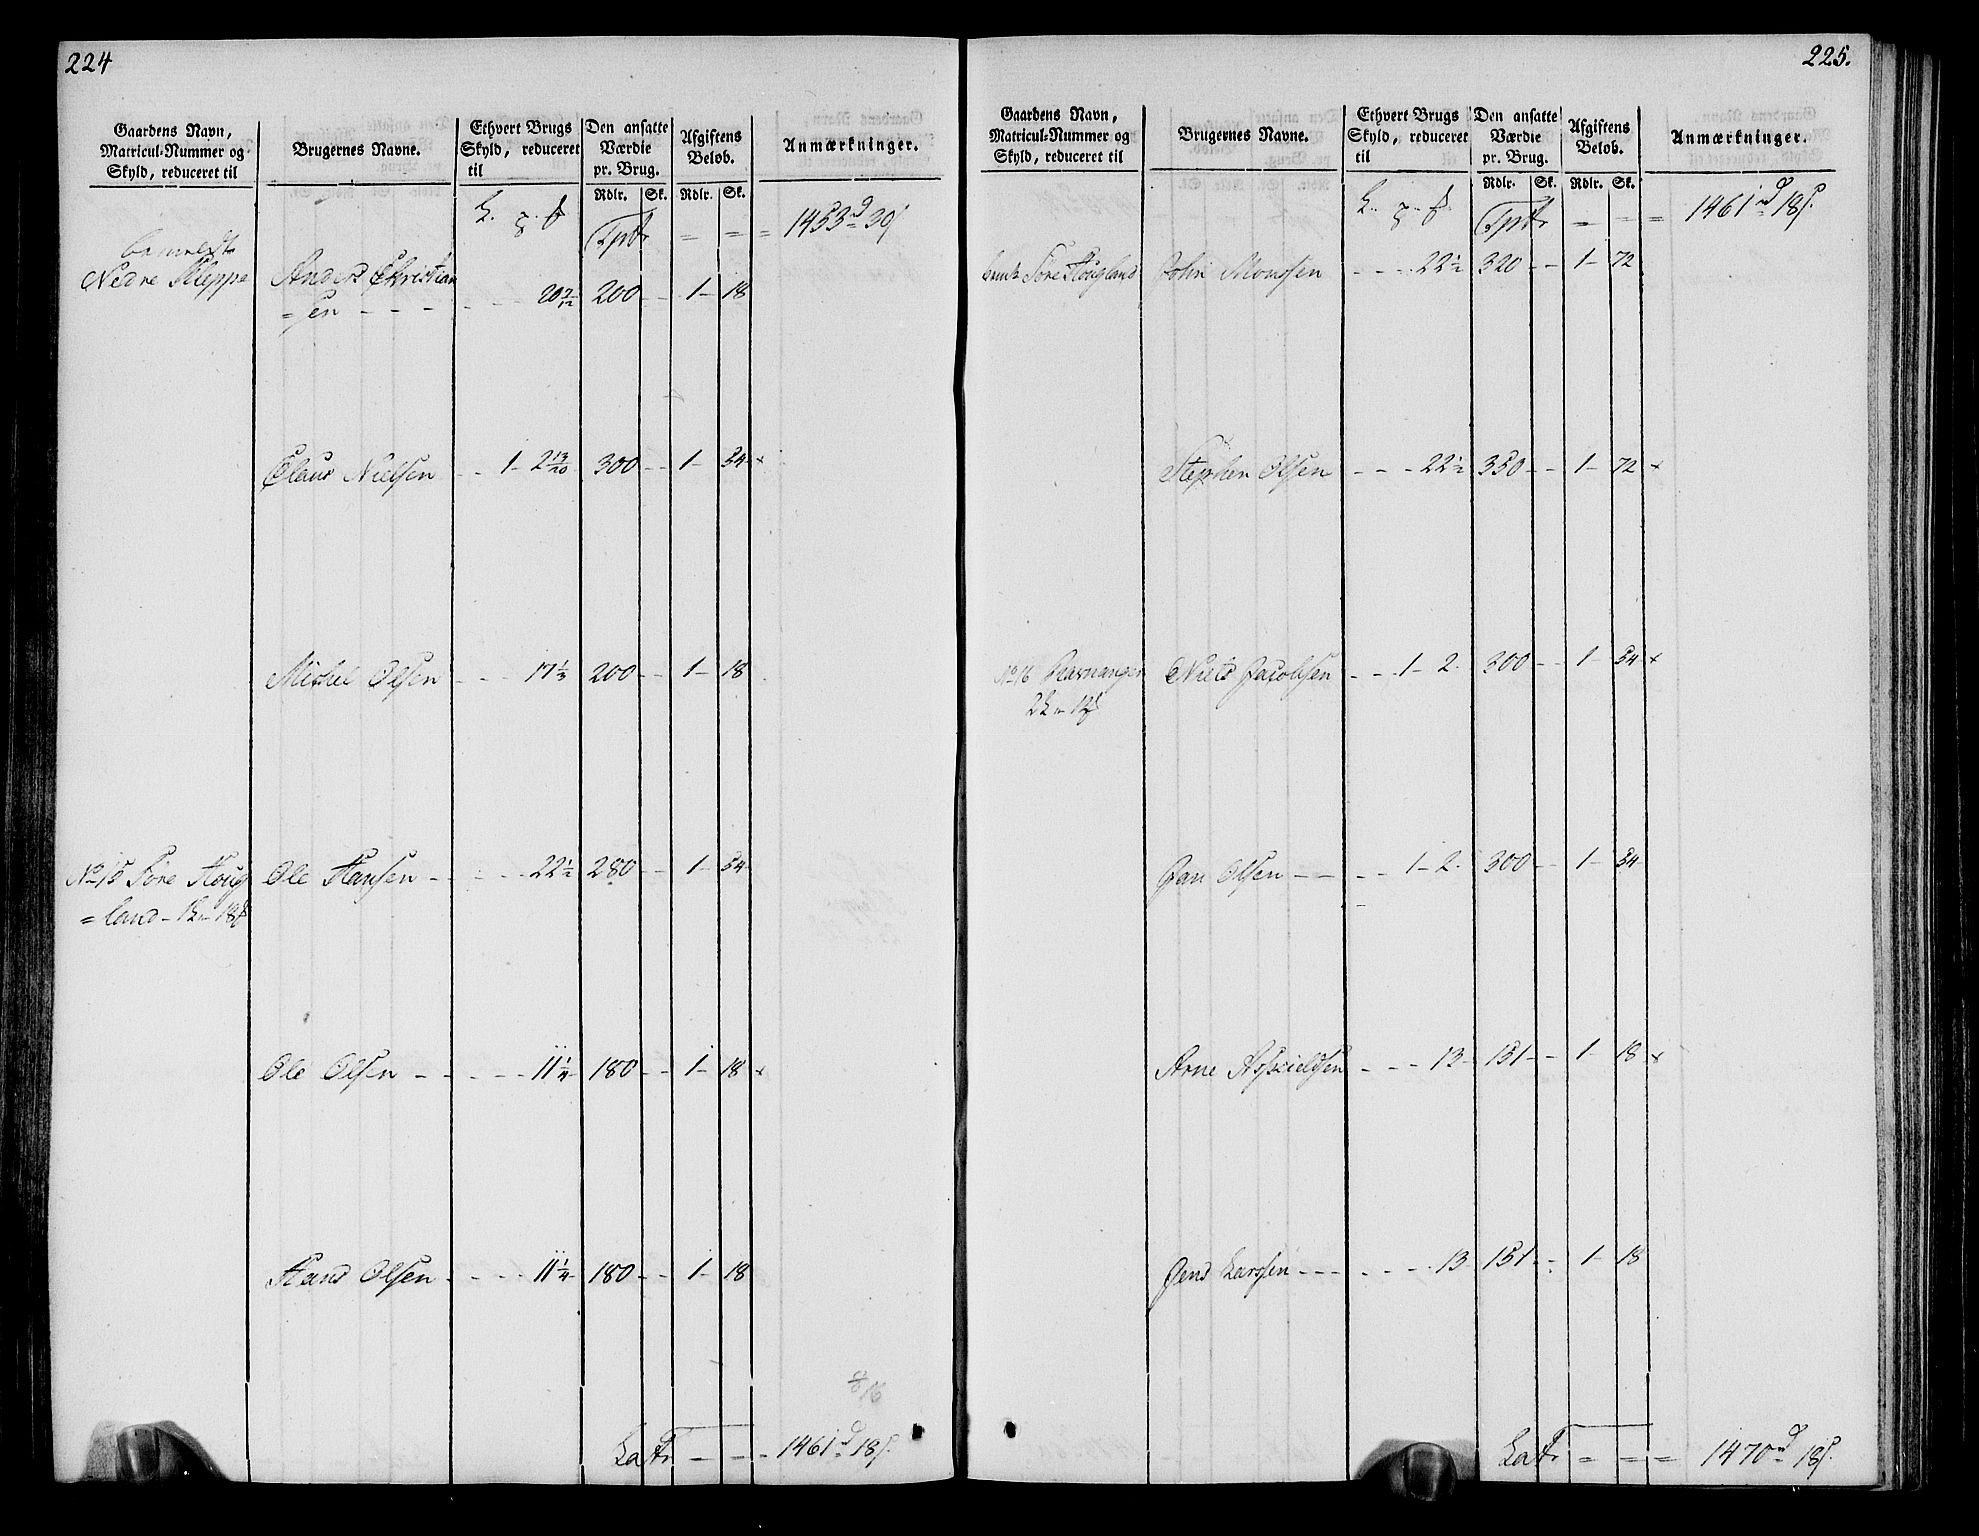 224
Gaardens Navn, Matricul-Nummer og Skyld, reduceret til | Brugernes Navne. | Ethvert Brugs Skyld, reduceret til | Den ansatte Værdie pr. Brug. | Afgiftens Beløb. | Anmærkninger.
Rdlr. | Sk. | Rdlr. | Sk.
Tprt = = = 1453 d 39 s
bemeldte
Nedre Kleppe | Anders Christian
=sen - - - - - 20 7/12 | 200 - - | 1 - 18
Claus Nielsen - - 1 - 2 13/20 | 300 - - | 1 - 54 x
Michel Olsen - - - 17 1/3 | 200 - - | 1 - 18
No 15 Søre Houg | Ole Hansen - - - - 22 1/2 | 280 - - | 1 - 54
=land - 1 - 18
Ole Olsen - - - - 11 1/4 | 180 - - | 1 - 18 x
Hans Olsen - - - - 11 1/4 | 180 - - | 1 - 18
Latr - - - 1461 d 18 s.
225.
Gaardens Navn, Matricul-Nummer og Skyld, reduceret til | Brugernes Navne. | Ethvert Brugs Skyld, reduceret til | Den ansatte Værdie pr. Brug. | Afgiftens Beløb. | Anmærkninger.
Rdlr. | Sk. | Rdlr. | Sk.
Tprt = = = 1461 d 18 s.
Søre Hougland | John Monssen - - - 22 1/2 | 320 - - | 1 - 72
Stephen Olsen - - - 22 1/2 | 350 - - | 1 - 72 x
No 16 Ravnanger | Niels Jacobsen - - - 1 - 2 | 300 - - | 1 - 54 x
2 - 12
Jan Olsen - - - - 1 - 2 | 300 - - | 1 - 54
Arne Askieldsen - - - 13 - | 151 - - | 1 - 18 x
Jens Larssen - - - - - - 13 | 151 - - | 1 - 18
Latr = = = 1470 d 18 s.